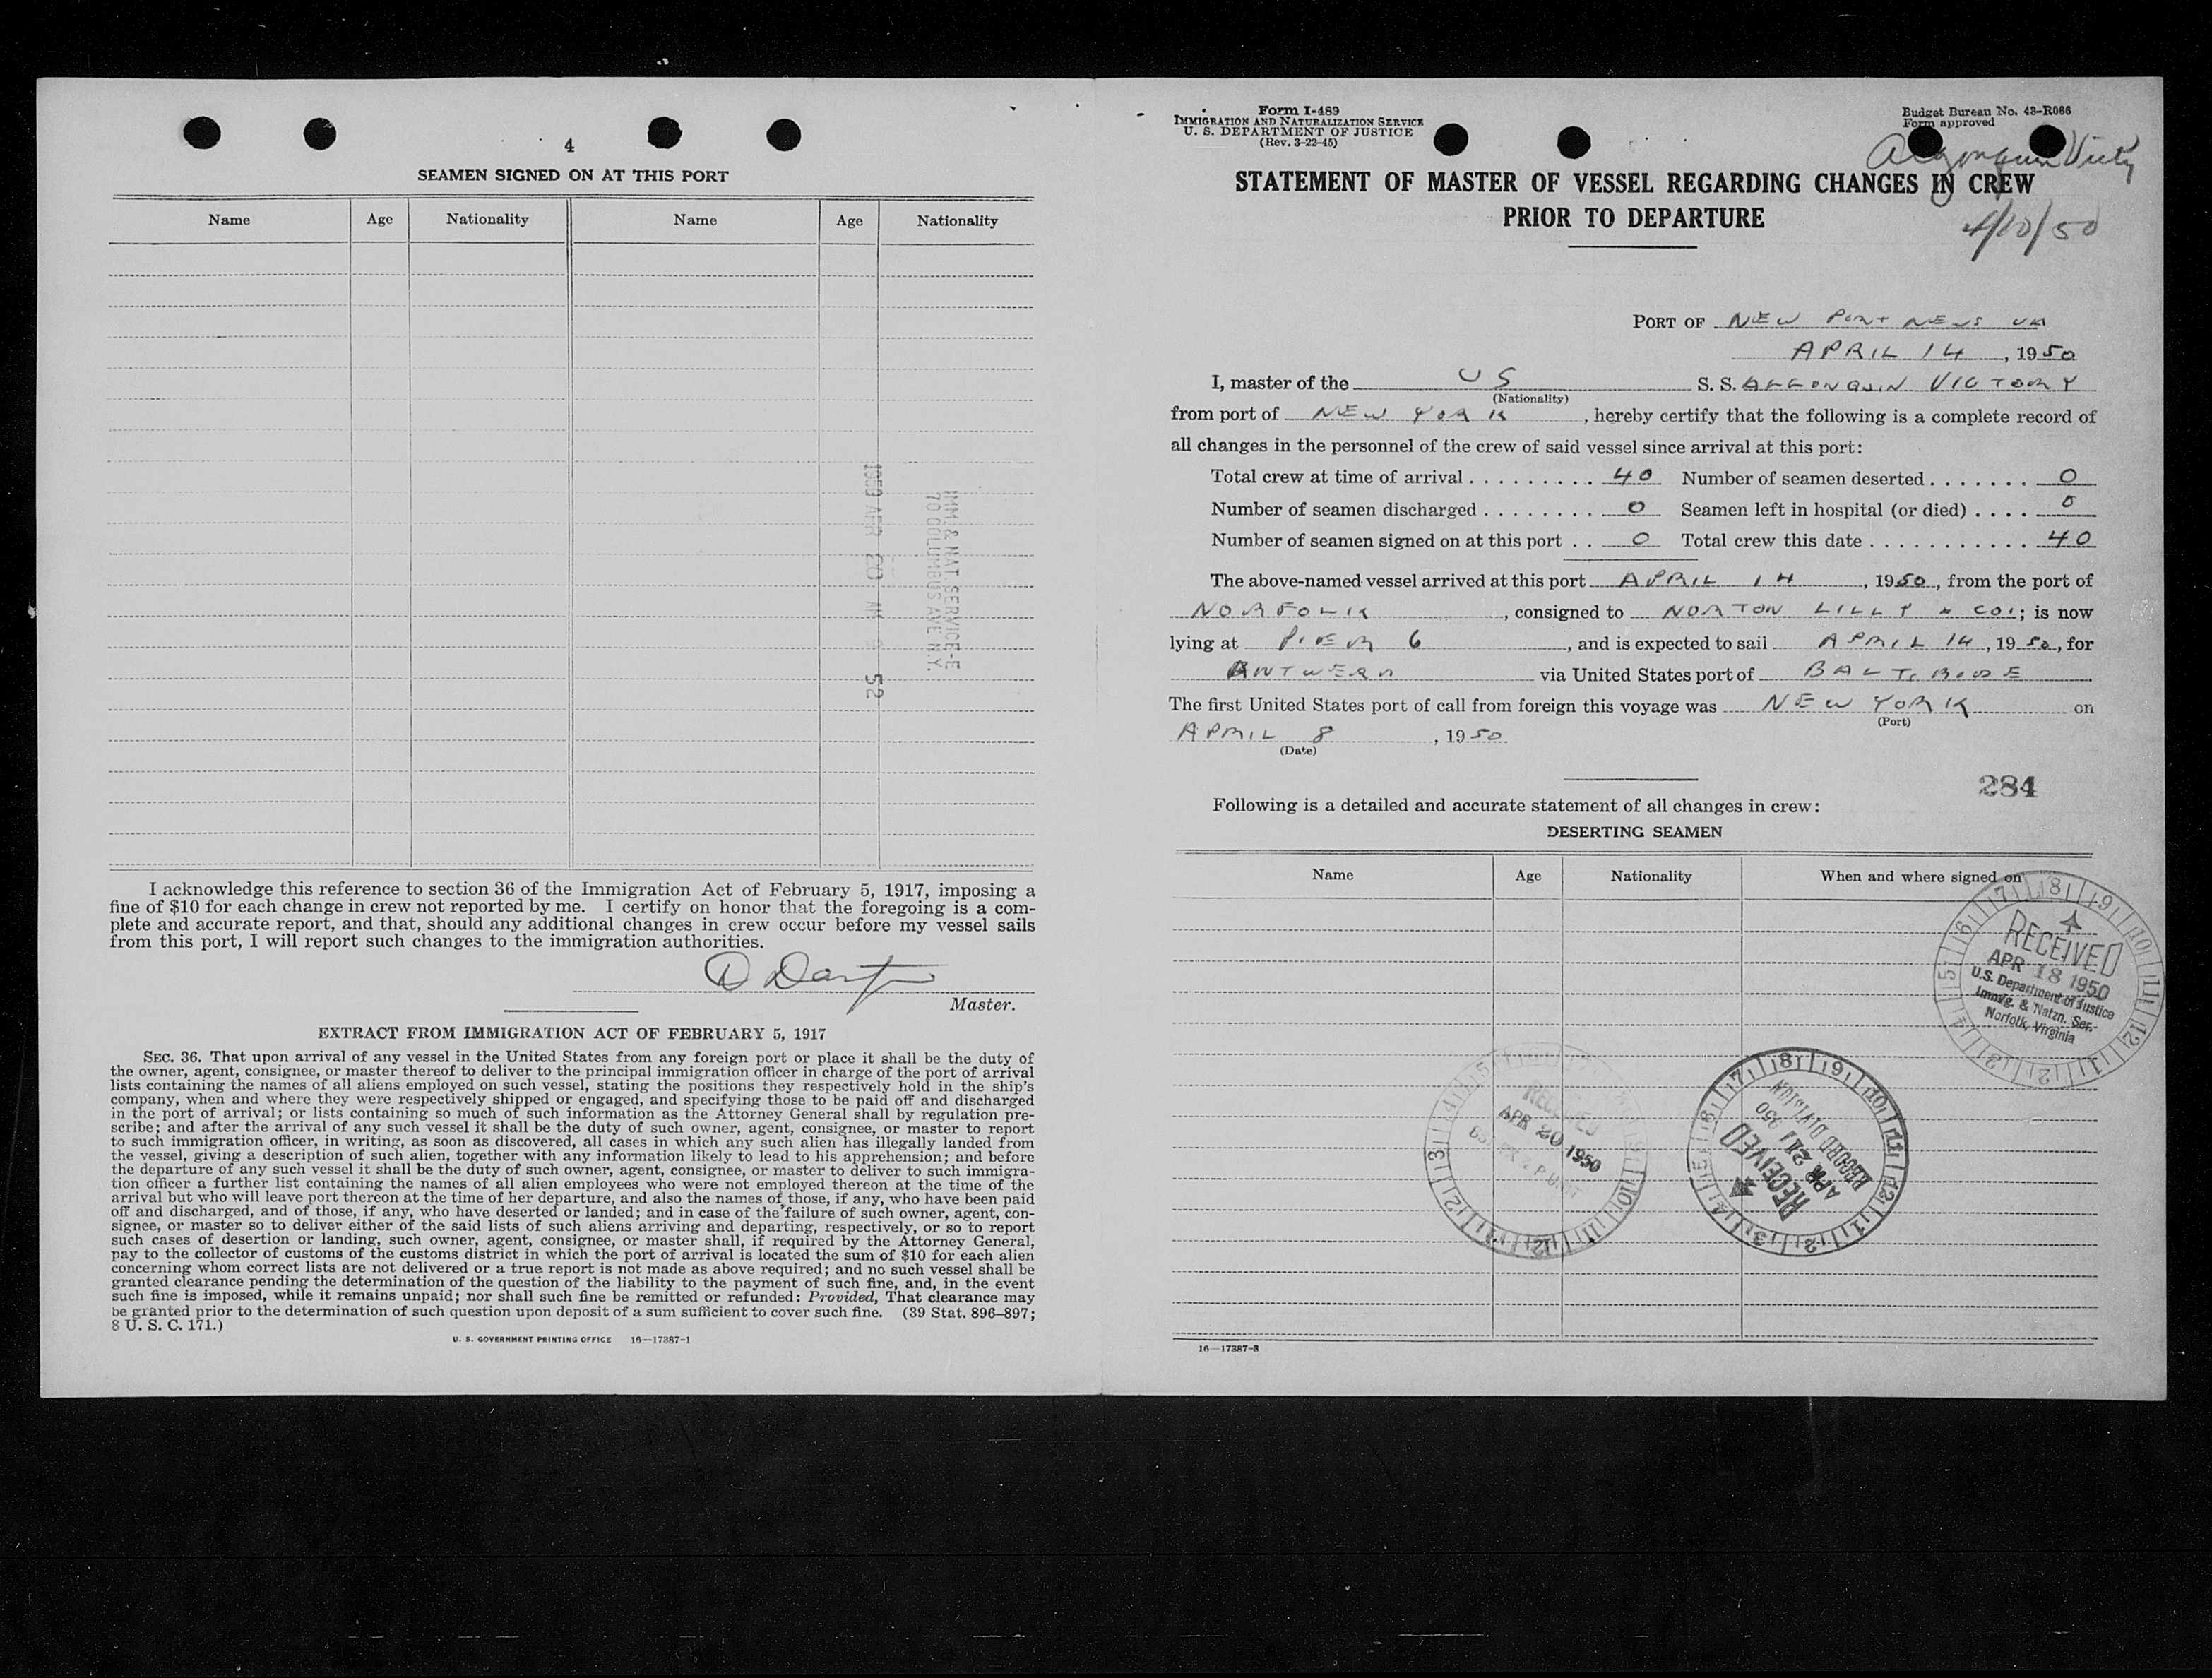 4
SEAMEN SIGNED ON AT THIS PORT
Name Age Nationality Name Age Nationality
1950 APR 20 52
IMM. & NAT. SERVICE-E
70 COLUMBUS AVE. N.Y.
I acknowledge this reference to section 36 of the Immigration Act of February 5, 1917, imposing a
fine of $10 for each change in crew not reported by me. I certify on honor that the foregoing is a com-
plete and accurate report, and that, should any additional changes in crew occur before my vessel sails
from this port, I will report such changes to the immigration authorities.
Master.
EXTRACT FROM IMMIGRATION ACT OF FEBRUARY 5, 1917
SEC. 36. That upon arrival of any vessel in the United States from any foreign port or place it shall be the duty of
the owner, agent, consignee, or master thereof to deliver to the principal immigration officer in charge of the port of arrival
lists containing the names of all aliens employed on such vessel, stating the positions they respectively hold in the ship's
company, when and where they were respectively shipped or engaged, and specifying those to be paid off and discharged
in the port of arrival; or lists containing so much of such information as the Attorney General shall by regulation pre-
scribe; and after the arrival of any such vessel it shall be the duty of such owner, agent, consignee, or master to report
to such immigration officer, in writing, as soon as discovered, all cases in which any such alien has illegally landed from
the vessel, giving a description of such alien, together with any information likely to lead to his apprehension; and before
the departure of any such vessel it shall be the duty of such owner, agent, consignee, or master to deliver to such immigra-
tion officer a further list containing the names of all alien employees who were not employed thereon at the time of the
arrival but who will leave port thereon at the time of her departure, and also the names of those, if any, who have been paid
off and discharged, and of those, if any, who have deserted or landed; and in case of the failure of such owner, agent, con-
signee, or master so to deliver either of the said lists of such aliens arriving and departing, respectively, or so to report
such cases of desertion or landing, such owner, agent, consignee, or master shall, if required by the Attorney General,
pay to the collector of customs of the customs district in which the port of arrival is located the sum of $10 for each alien
concerning whom correct lists are not delivered or a true report is not made as above required; and no such vessel shall be
granted clearance pending the determination of the question of the liability to the payment of such fine, and, in the event
such fine is imposed, while it remains unpaid; nor shall such fine be remitted or refunded: Provided, That clearance may
be granted prior to the determination of such question upon deposit of a sum sufficient to cover such fine. (39 Stat. 896–897;
8 U. S. C. 171.)
U. S. GOVERNMENT PRINTING OFFICE 16—17387-1
Form I-489
IMMIGRATION AND NATURALIZATION SERVICE
U. S. DEPARTMENT OF JUSTICE
(Rev. 3-22-45)
Budget Bureau No. 43-R086
Form approved
Algonquin Victy
STATEMENT OF MASTER OF VESSEL REGARDING CHANGES IN CREW
PRIOR TO DEPARTURE
4/10/50
PORT OF NEW PORT NEWS VA
APRIL 14, 1950
I, master of the US S. S. ALGONQUIN VICTORY
(Nationality)
from port of NEW YORK, hereby certify that the following is a complete record of
all changes in the personnel of the crew of said vessel since arrival at this port:
Total crew at time of arrival 40 Number of seamen deserted 0
Number of seamen discharged 0 Seamen left in hospital (or died) 0
Number of seamen signed on at this port 0 Total crew this date 40
The above-named vessel arrived at this port APRIL 14, 1950, from the port of
NORFOLK, consigned to NORTON LILLY & CO.; is now
lying at PIER 6, and is expected to sail APRIL 14, 1950, for
ANTWERP via United States port of BALTIMORE
The first United States port of call from foreign this voyage was NEW YORK on
(Port)
APRIL 8, 1950
(Date)
284
Following is a detailed and accurate statement of all changes in crew:
DESERTING SEAMEN
Name Age Nationality When and where signed on
RECEIVED
APR 18 1950
U.S. Department of Justice
Immig. & Natzn. Ser.
Norfolk, Virginia
RECEIVED
APR 20 1950
RECEIVED
APR 21 950
RECORD DIVISION
16—17387-3